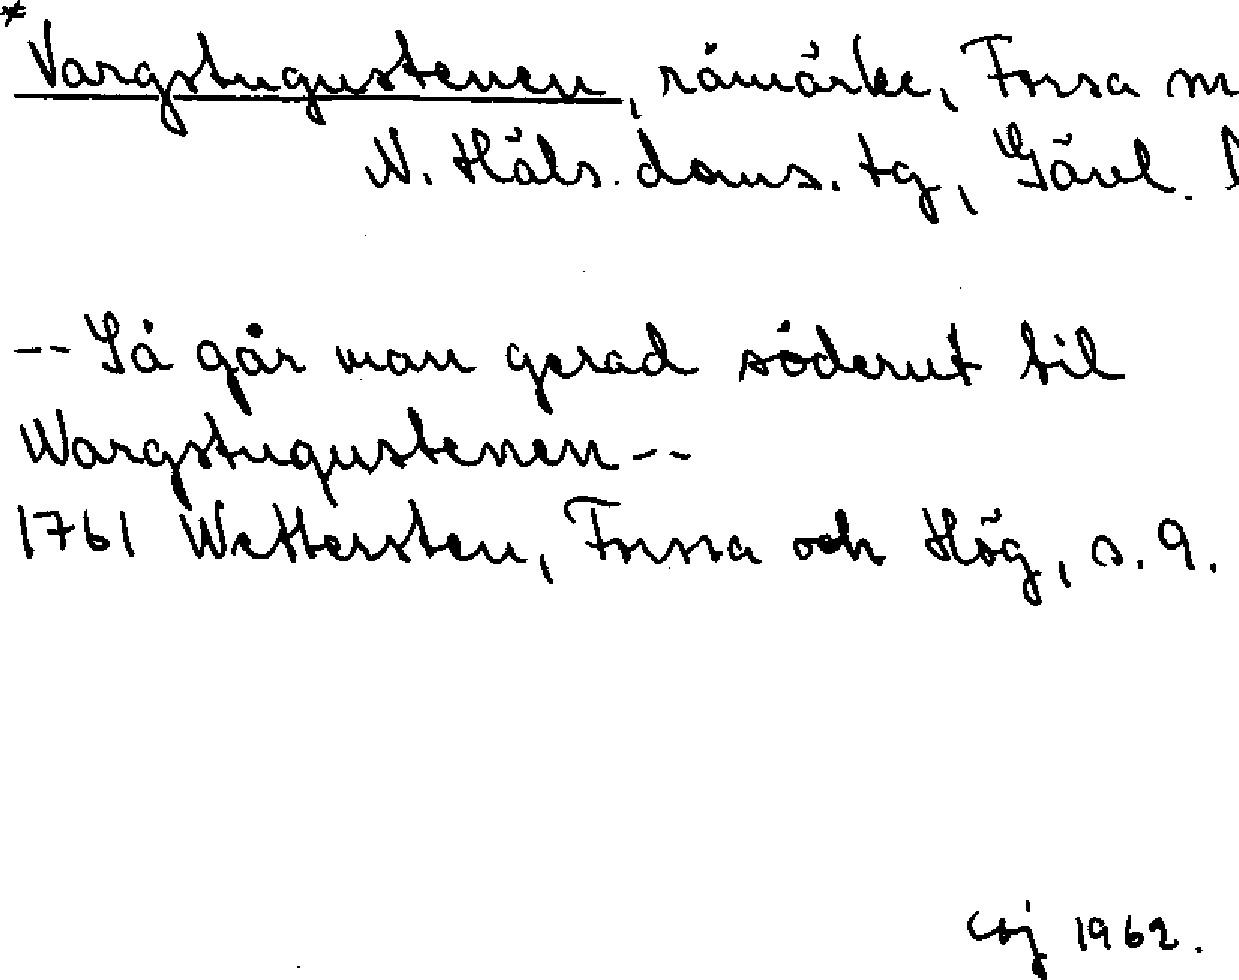 *Vargstugustenen, råmärke, Forsa
N. Häls. doms. tg, Gävl.
-- Så går man gerad söderut til
Wargstugustenen --
1761 Wettersten, Forssa och Hög, s. 9.
1962.